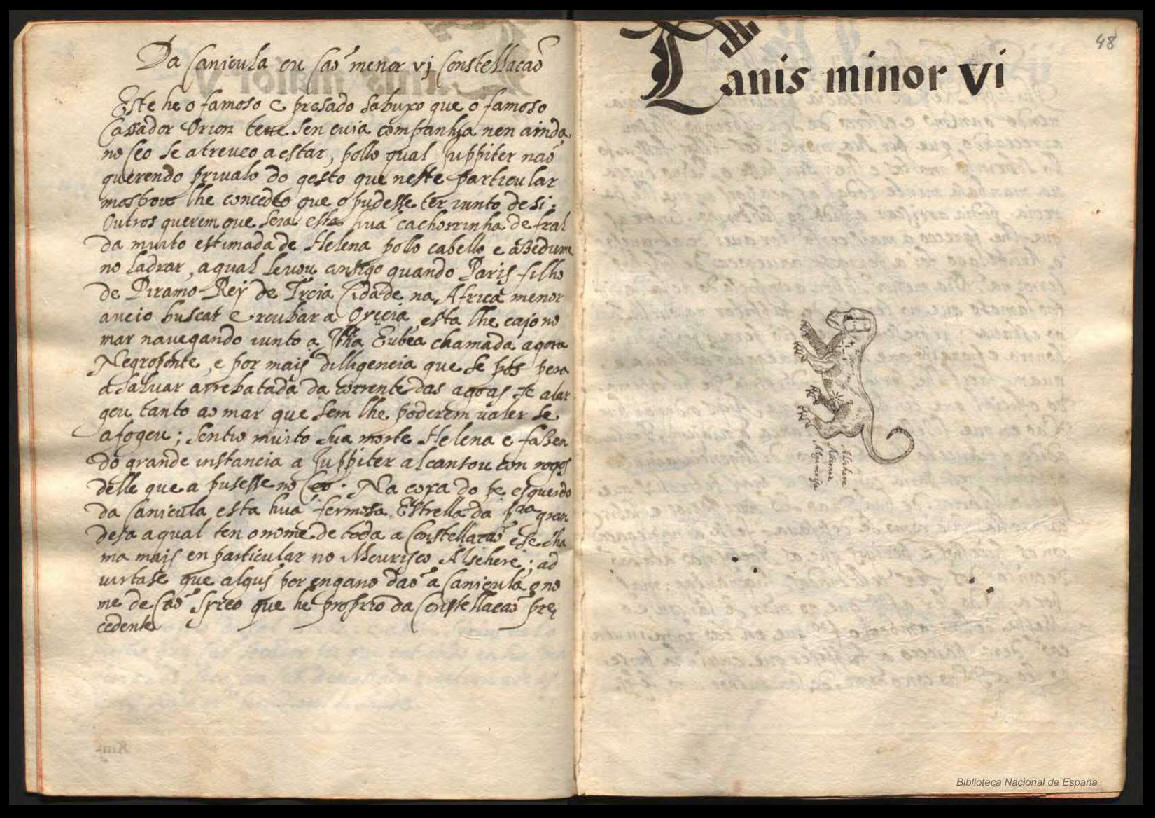 Da Canicula ou Caõ menor vj Constellacaõ
Este he o famoso e presado sabuxo que o famoso
Cassador Orion teve sen cuia companhia nen ainda
no Ceo se atreveo a estar, pollo qual Juppiter naõ
querendo privalo do gosto que neste particular
mostrou lhe concedeo que o pudesse ter iunto de si.
Outros querem que seia esta hua cachorrinha de fral
da muito estimada de Helena polo cabello e
no ladrar, a qual levou consigo quando Paris filho
de Piramo Rey de Troia Cidade na Africa menor
aneio buscar e roubar a Grecia esta lhe cajo no
mar navegando iunto a Ilha Eubea chamada agora
Negroponte, e por mais dilligencia que se pôs pera
a salvar arrebatada da corrente das agoas se alar
gou tanto ao mar que sem lhe poderem valer se
afogou; sentio muito sua morte Helena e faZen
do grande instancia a Juppiter alcansou con rogos
delle que a pusesse no Ceo. Na coxa do pe esquerdo
da canicula esta huã fermosa Estrella da pra gran
desa a qual ten o nome de toda a Constellacaõ e se cha
ma mais en particular no Mourisco Alsehere; ad
virtase que algũs por engano daõ a Canicula o no
me de Caõ Syreo que he proprio da Constellacaõ pre
cedente
48
Canis minor VI
Biblioteca Nacional de España